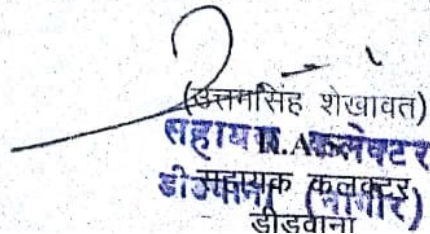 (उत्तमसिंह शेखावत)
सहायक कलेक्टर
R.A.S
डीडवाना (नागौर)
सहायक कलक्टर,
डीडवाना